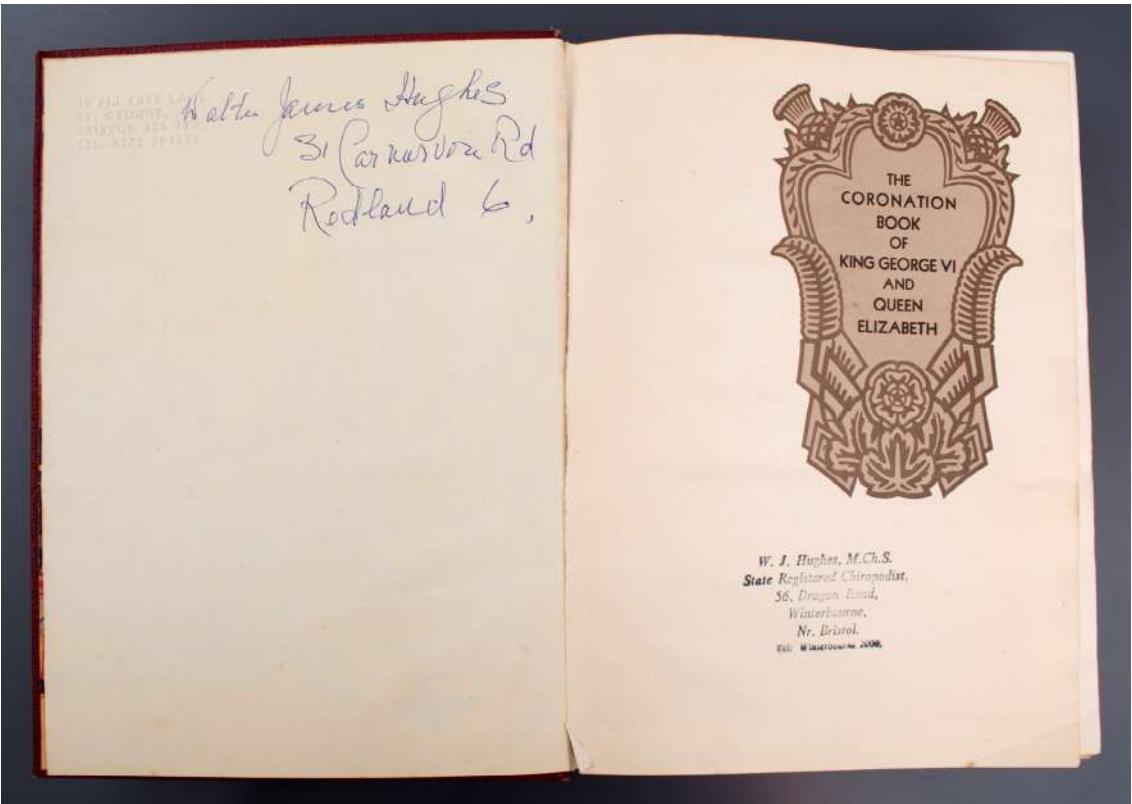 ST. GEORGE,
BRISTOL
TEL. 0272
Walter James Hughes
31 Carnarvon Rd
Redland 6,
THE
CORONATION
BOOK
OF
KING GEORGE VI
AND
QUEEN
ELIZABETH
W. J. Hughes, M.Ch.S.
State Registered Chiropodist,
56, Dragon Road,
Winterbourne,
Nr. Bristol.
Tel: Winterbourne 2000.